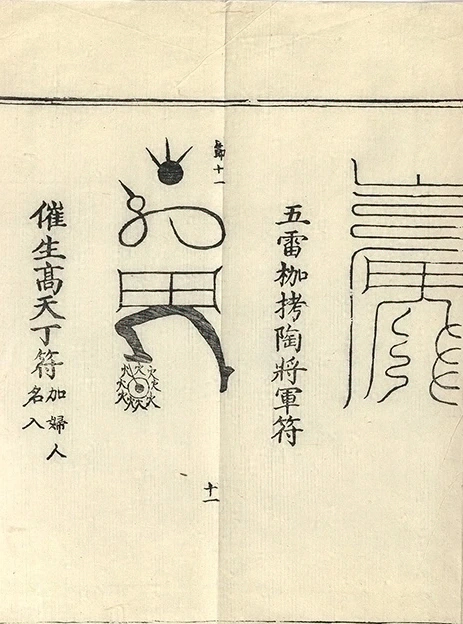 五雷枷拷陶將軍符
十一
十一
催生髙天丁符加婦人
名入